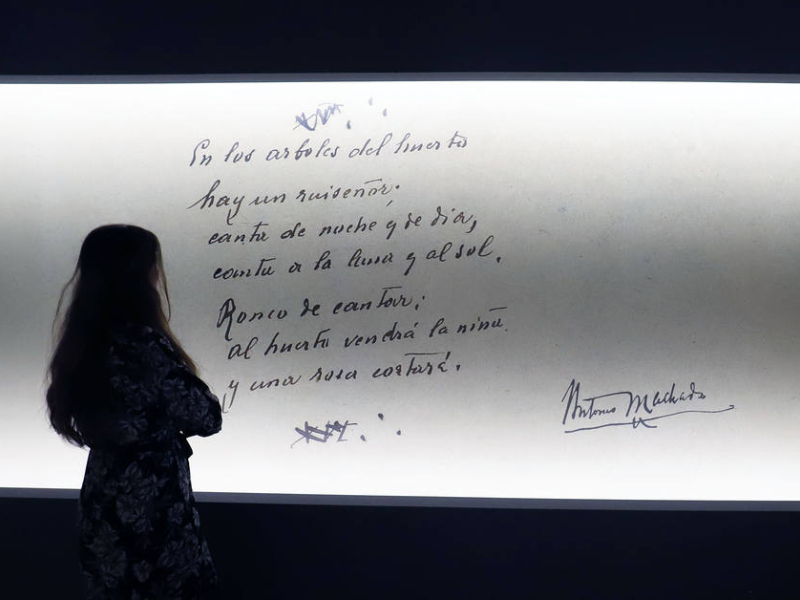 En los arboles del huerto
hay un ruiseñor;
canta de noche y de dia,
canta a la luna y al sol.
Ronco de cantar:
al huerto vendrá la niña
y una rosa cortará.
Antonio Machado